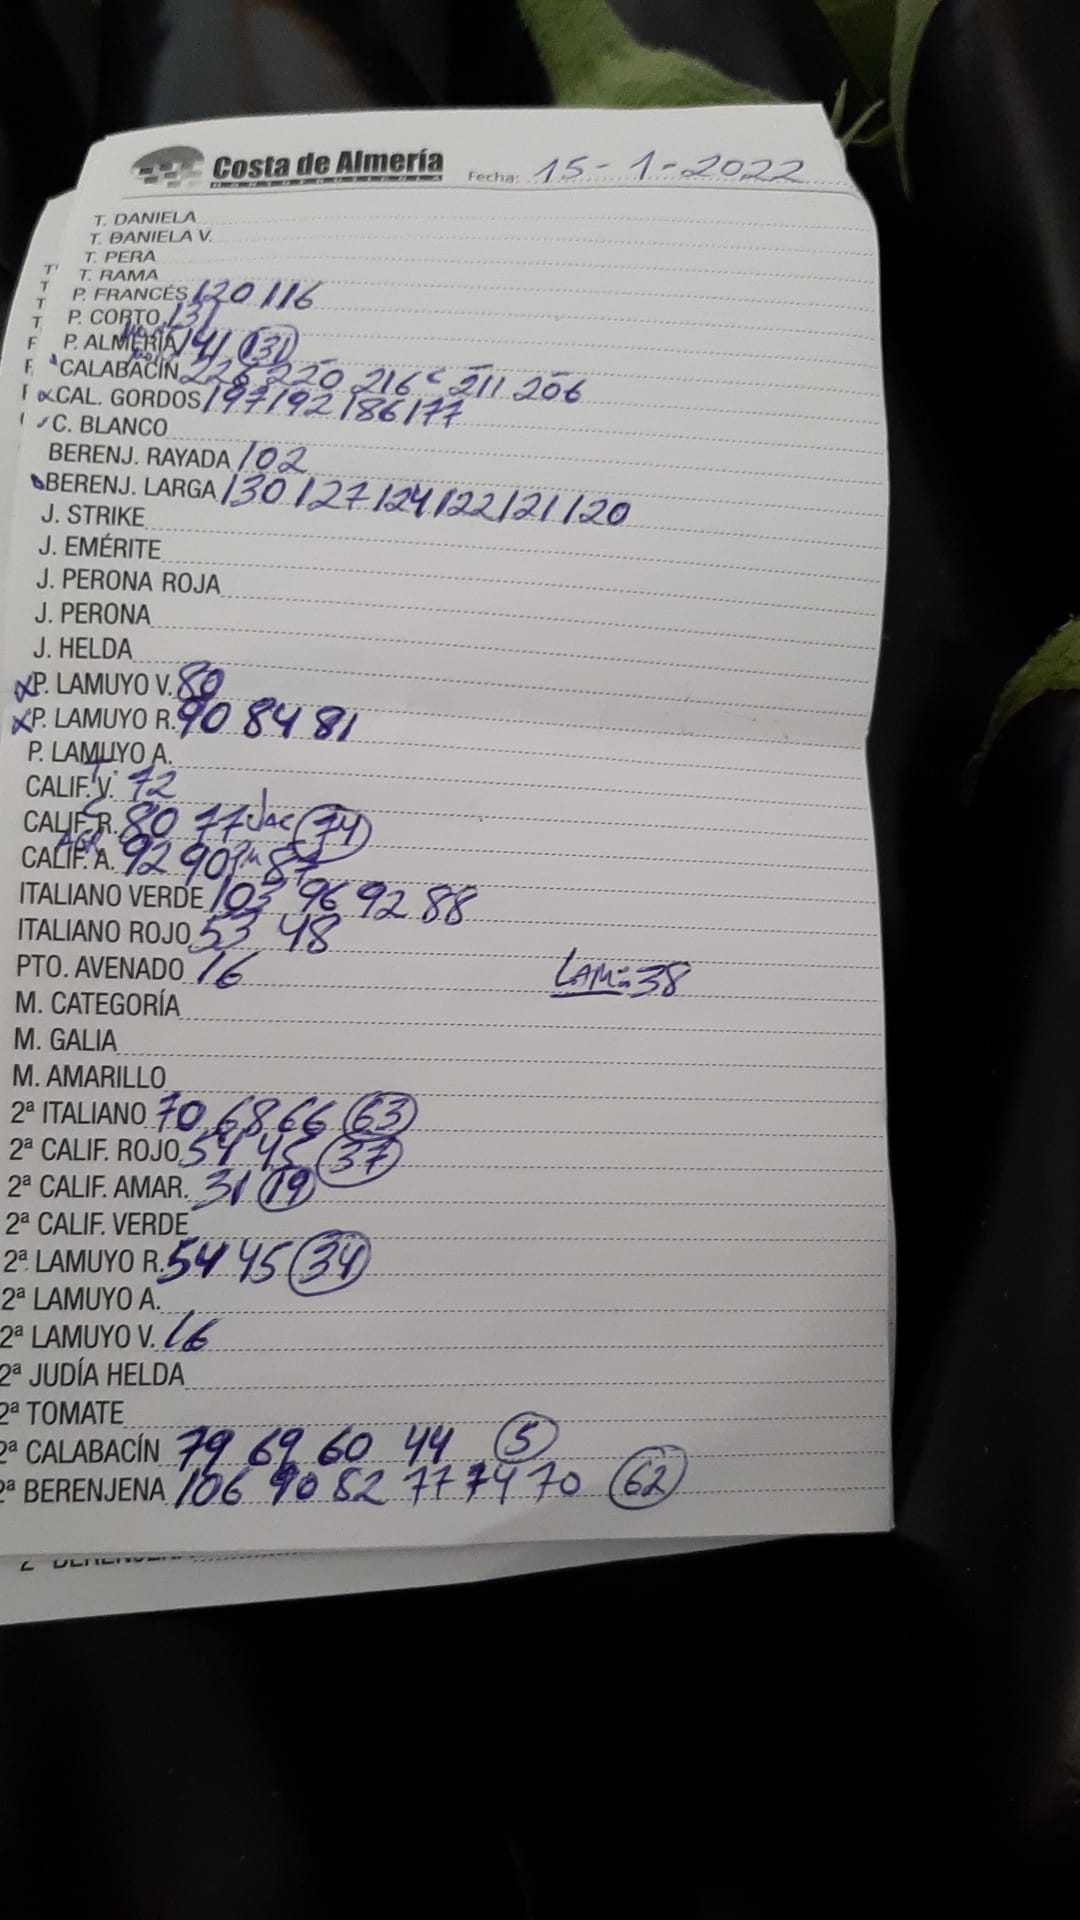 Costa de Almería
HORTOFRUTICOLA
Fecha: 15-1-2022
T. DANIELA
T. DANIELA V.
T. PERA
T. RAMA
P. FRANCÉS 120 116
P. CORTO 131
P. ALMERÍA 141 131
CALABACÍN 226 220 216 c 211 206
CAL. GORDOS 197 192 186 177
C. BLANCO
BERENJ. RAYADA 102
BERENJ. LARGA 130 127 124 122 121 120
J. STRIKE
J. EMÉRITE
J. PERONA ROJA
J. PERONA
J. HELDA
P. LAMUYO V. 80
P. LAMUYO R. 90 84 81
P. LAMUYO A.
CALIF. V. 72
CALIF. R. 80 77 Jac 74
CALIF. A. 92 90 87
ITALIANO VERDE 103 96 92 88
ITALIANO ROJO 53 48
PTO. AVENADO 16 LAM: 38
M. CATEGORÍA
M. GALIA
M. AMARILLO
2ª ITALIANO 70 68 66 63
2ª CALIF. ROJO 54 45 37
2ª CALIF. AMAR. 31 19
2ª CALIF. VERDE
2ª LAMUYO R. 54 45 34
2ª LAMUYO A.
2ª LAMUYO V. 16
2ª JUDÍA HELDA
2ª TOMATE
2ª CALABACÍN 79 69 60 44 5
2ª BERENJENA 106 90 82 77 74 70 62